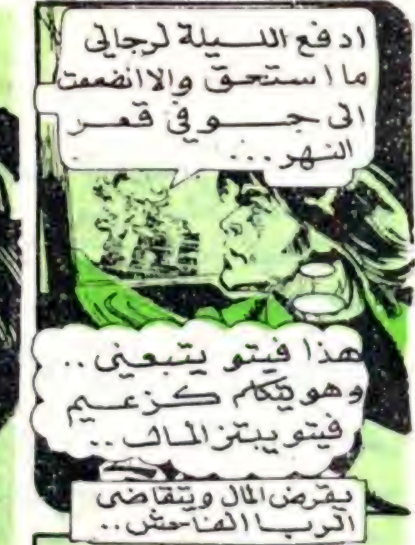 ادفع الليلة لرجالي
ما استحق والا انضممت
الى جو في قعر
النهر...
هذا فيتو يتبعني..
وهو يتكلم كزعيم
فيتو يبتز المال..
يقرض المال ويتقاضى
الربا الفاحش..